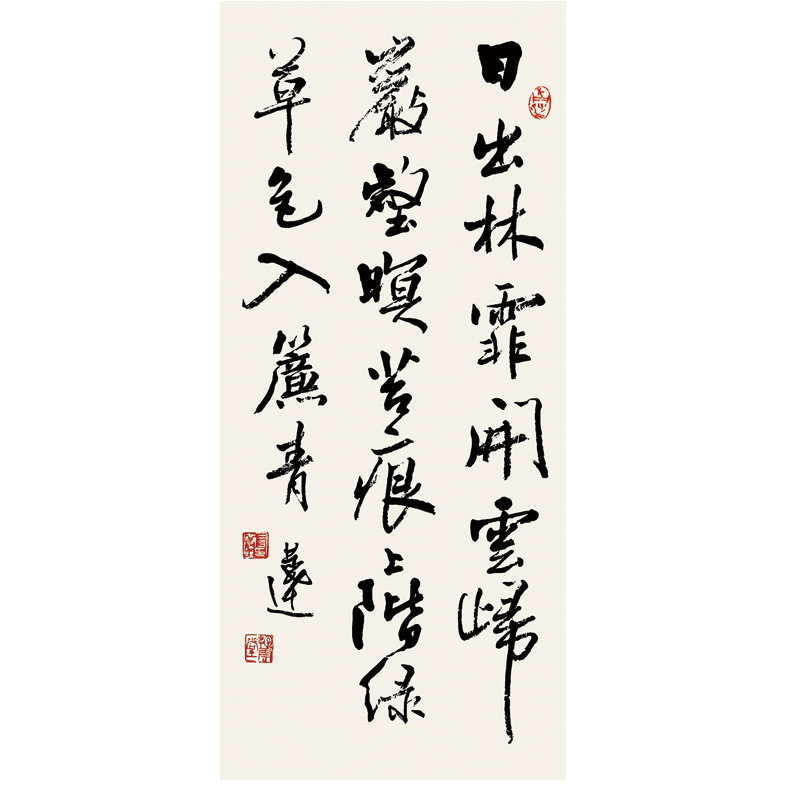 日出林霏開雲歸
巖壑暝苔痕上階綠
草色入簾青